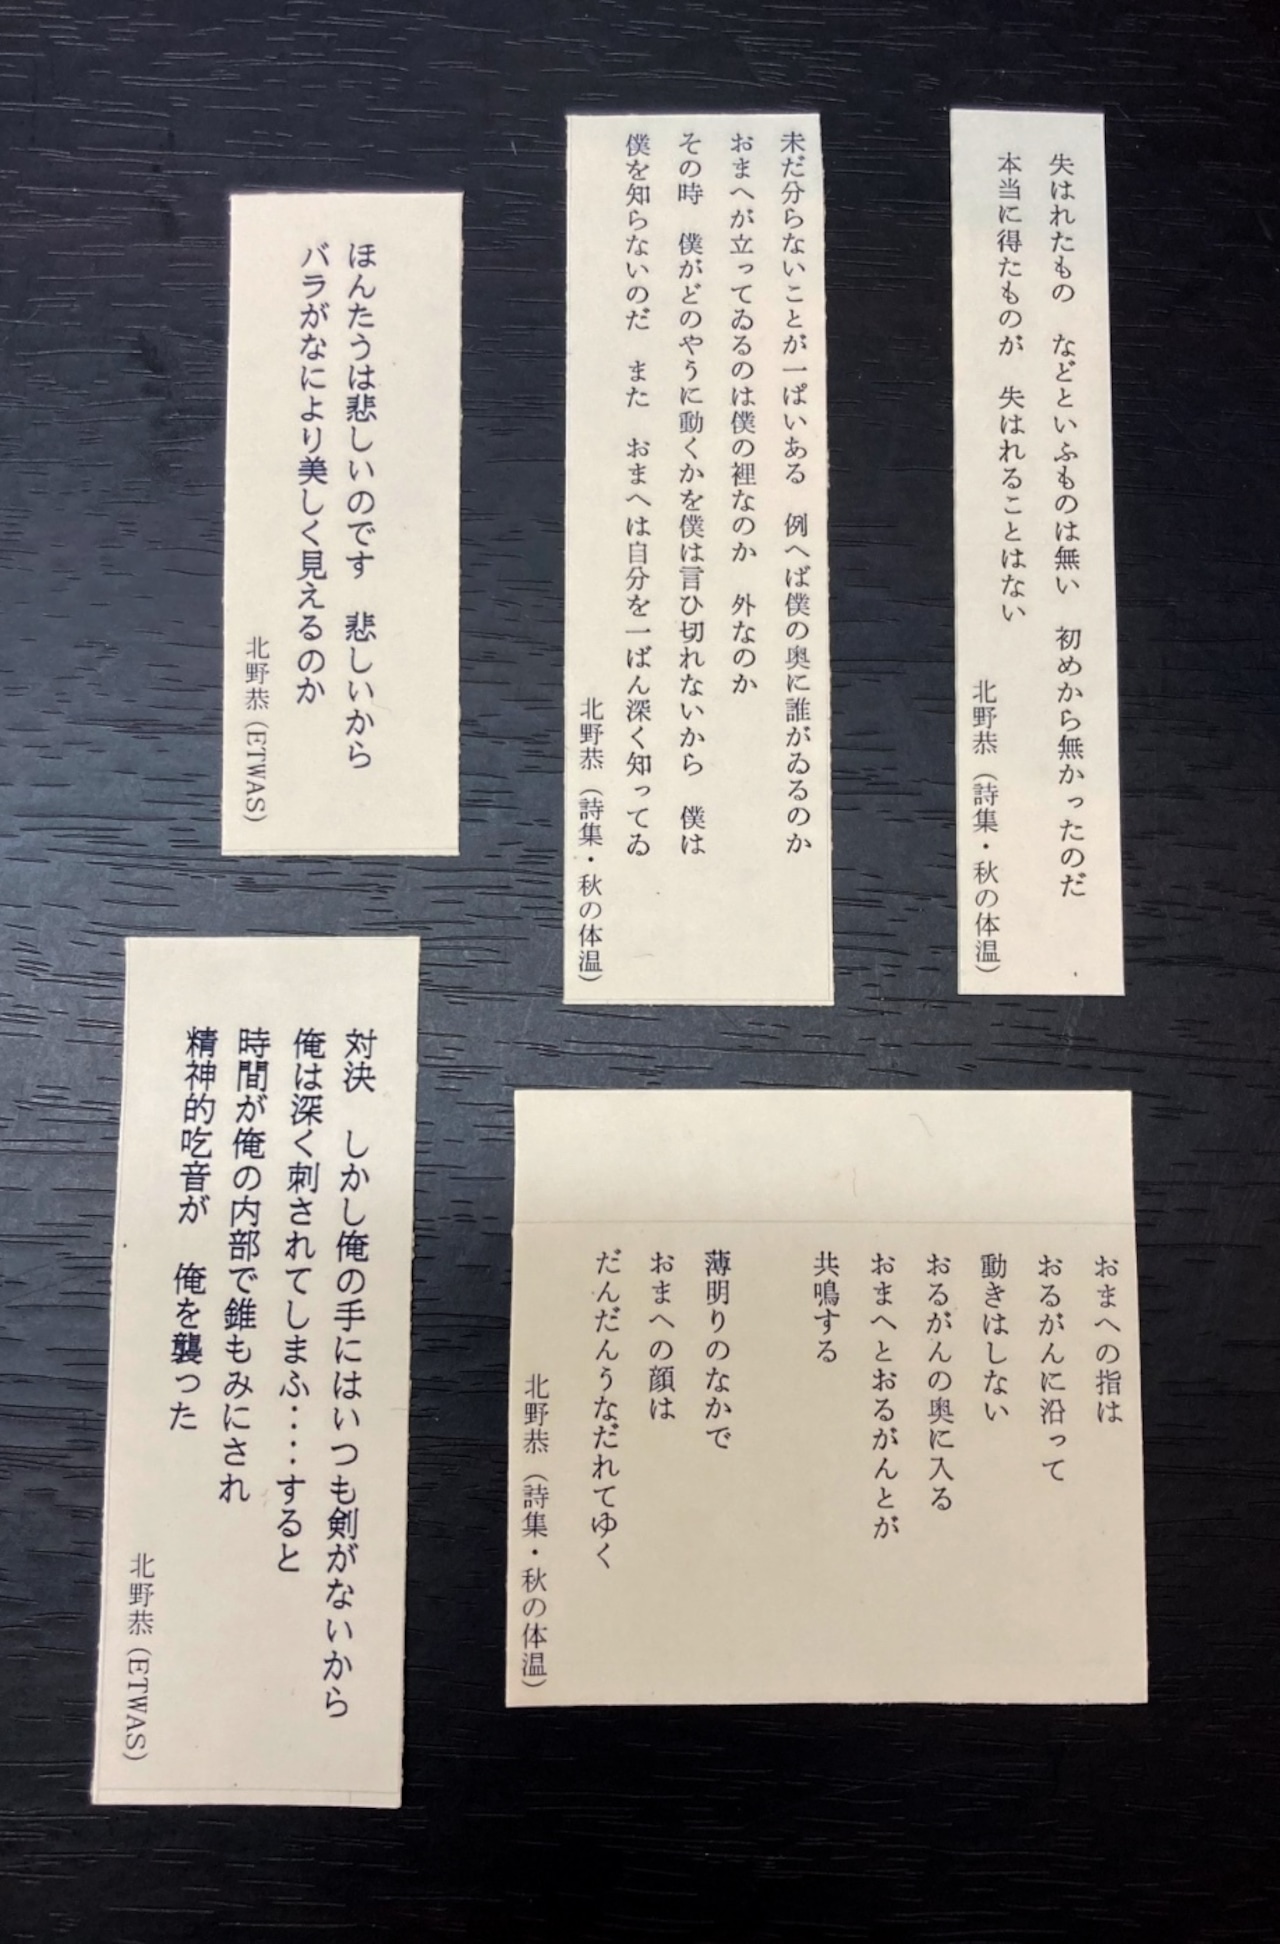 失はれたもの　などといふものは無い　初めから無かったのだ
本当に得たものが　失はれることはない
北野恭（詩集・秋の体温）
未だ分らないことが一ぱいある　例へば僕の奥に誰がゐるのか
おまへが立ってゐるのは僕の裡なのか　外なのか
その時　僕がどのやうに動くかを僕は言ひ切れないから　僕は
僕を知らないのだ　また　おまへは自分を一ばん深く知ってゐ
北野恭（詩集・秋の体温）
ほんたうは悲しいのです　悲しいから
バラがなにより美しく見えるのか
北野恭(ETWAS)
おまへの指は
おるがんに沿って
動きはしない
おるがんの奥に入る
おまへとおるがんとが
共鳴する
薄明りのなかで
おまへの顔は
だんだんうなだれてゆく
北野恭（詩集・秋の体温）
対決　しかし俺の手にはいつも剣がないから
俺は深く刺されてしまふ・・・・すると
時間が俺の内部で錐もみにされ
精神的吃音が　俺を襲った
北野恭(ETWAS)